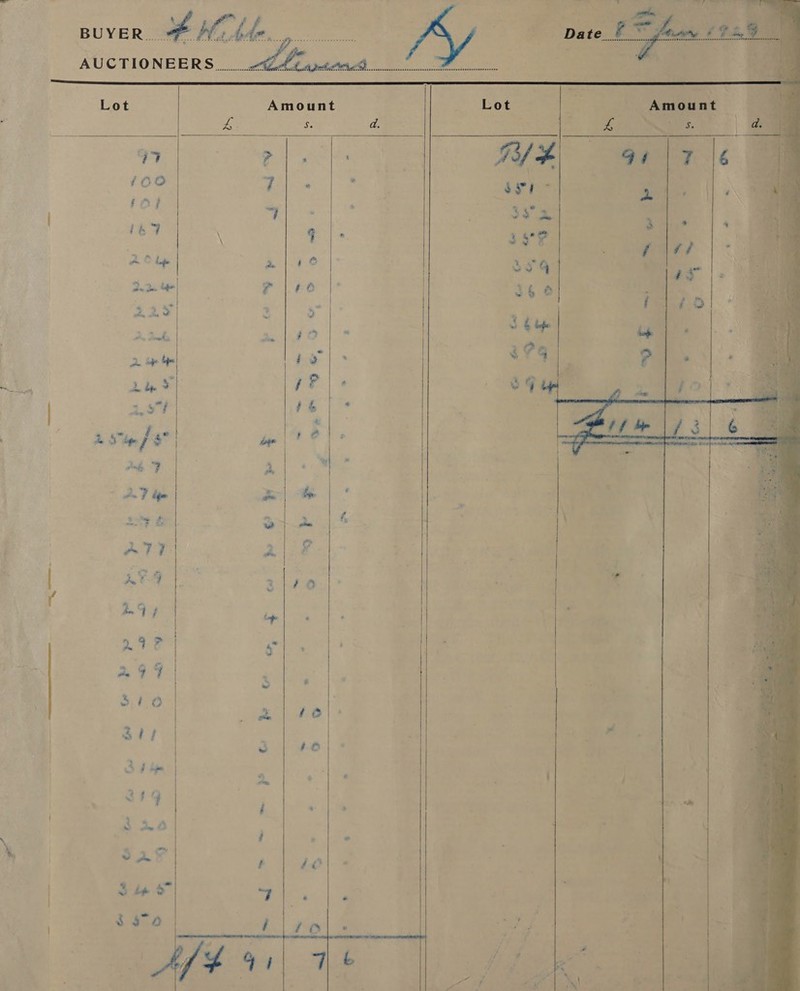 BUYER F Wells Date 8th June 1928
AUCTIONEERS Stevens
Lot Amount Lot Amount
£ s. d. £ s. d.
97 8 . .
100 7 . .
101 7 . .
167 9 .
204 2 10 .
224 8 10 .
225 3 5 .
226 2 10 .
244 15 .
245 18 .
251 16 .
254/5 4 10 .
267 2 . .
274 2 4 .
276 3 2 6
277 2 8 .
289 3 10 .
291 4 . .
298 5 . .
299 3 .
310 2 10 .
311 3 10 .
314 2 . .
319 1 . .
320 1 . .
328 1 10 .
345 7 . .
350 1 10 .
C/F 91 7 6
B/F 91 7 6
351 2 . .
352 3 . .
358 1 11 .
359 15 .
360 1 10 .
364 4 . .
389 8 . .
394 2 10 .
£114 13 6